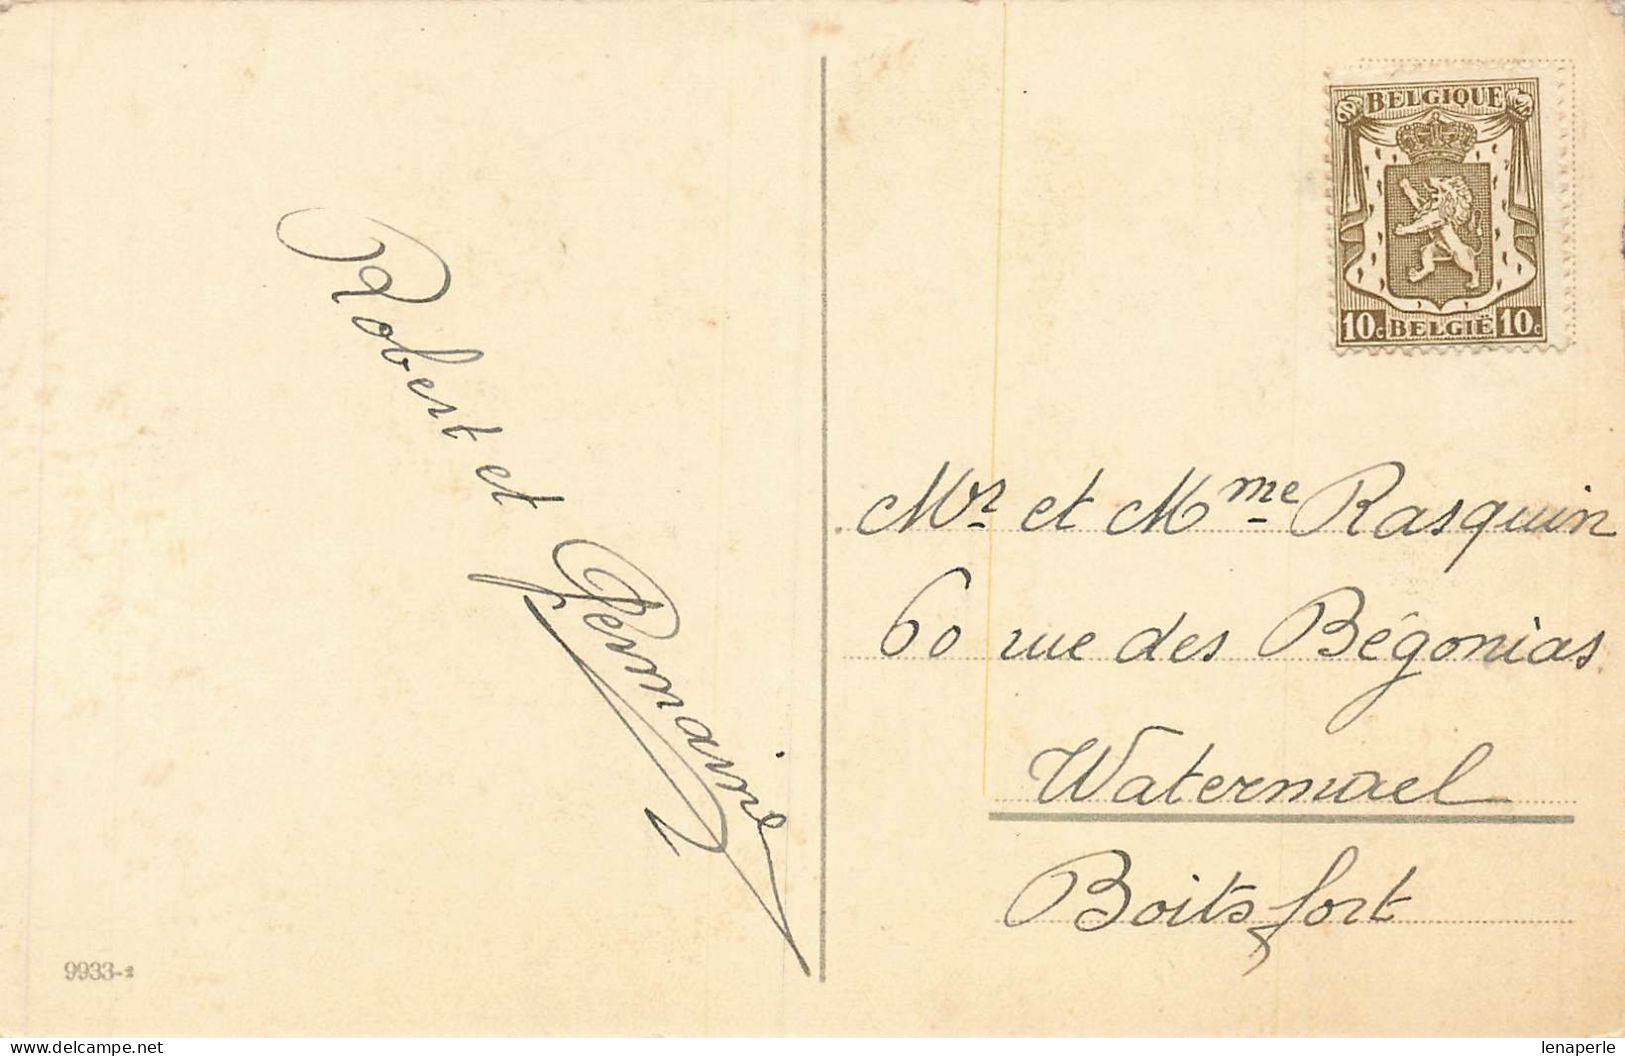 BELGIQUE
10c BELGIË 10c
Robert et Germaine
Mr et Mme Rasquin
60 rue des Bégonias
Watermael
Boitsfort
9933-2
www.delcampe.net
lenaperle